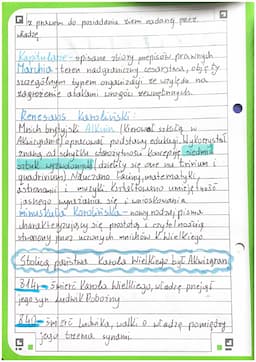 z prawem do posiadania ziem nadaną przez
władzę
Kapitularze - spisane zbiory przepisów prawnych
Marchia - teren nadgraniczny cesarstwa, objęty
szczególnym typem organizacji ze względu na
zagrożenie atakami wrogów zewnętrznych.
Renesans karoliński
Mnich brytyjski Alkuin (kierował szkołą w
Akwizgranie) opracował podstawy edukacji. Wykorzystał
znaną od schyłku starożytności koncepcję siedmiu
sztuk wyzwolonych, dzieliły się one na trivium i
quadrivium). Nauczano łaciny, matematyki,
astronomii i muzyki. Kształtowano umiejętność
jasnego wyrażania się i wnioskowania
minuskuła karolińska - nowy rodzaj pisma
charakteryzujący się prostotą i czytelnością
stworzony przez uczonych mnichów K. Wielkiego
Stolicą państwa Karola Wielkiego był Akwizgran
814r - śmierć Karola Wielkiego, władzę przejął
jego syn Ludwik Pobożny
840r - śmierć Ludwika, walki o władzę pomiędzy
jego trzema synami